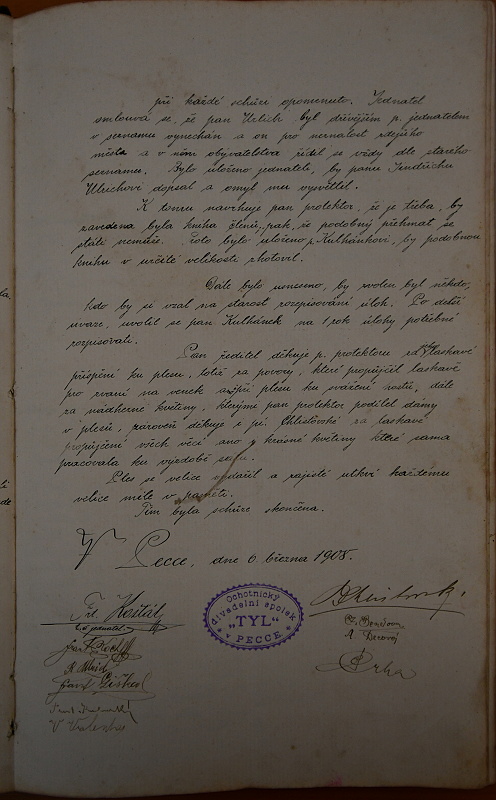 při každé schůzi opomenuto. Jednatel
smlouvá se, že pan Urlich byl dřívějším p. jednatelem
v seznamu vynechán a on pro neznalost zdejšího
města a v něm obyvatelstva řídil se vždy dle starého
seznamu. Bylo uloženo jednateli, by panu Jindřichu
Ulrichovi dopsal a omyl mu vysvětlil.
K tomu navrhuje pan protektor, že je třeba, by
zavedena byla kniha členů, pak, že podobný přehmat se
státi nemůže. Toto bylo uloženo p. Kulhánkovi, by podobnou
knihu v určité velikosti zhotovil.
Dále bylo usneseno, by zvolen byl někdo,
kdo by si vzal na starost rozepisování úloh. Po delší
úvaze, uvolil se pan Kulhánek na 1 rok úlohy potřebné
rozepisovati.
Pan ředitel děkuje p. protektoru za laskavé
přispění ku plesu, totiž za povozy, které propůjčil laskavě
pro zvaní na venek a při plesu ku svážení hostů, dále
za nádherné květiny, kterými pan protektor podělil dámy
v plesu, zároveň děkuje i pí. Chlístovské za laskavé
propůjčení všech věcí ano i krásné květiny které sama
pracovala ku výzdobě sálu.
Ples se velice vydařil a zajisté utkví každému
velice mile v paměti.
Tím byla schůze skončena.
V Pecce, dne 6 března 1908.
Ochotnický
divadelní spolek
"TYL"
v PECCE
Fr. Košťál
t. č. jednatel